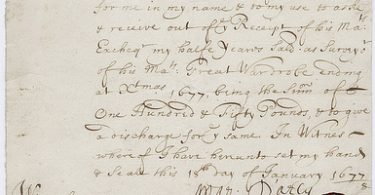 for me in my name & to my use to aske
& receive out of yᵉ Receipt of his Maᵗˢ
Excheqʳ my halfe years Sallʳ as Surveyʳ
of his Maᵗˢ Great Wardrobe ending
at Xtmas 1677, being the Summ of
One Hundred & Fifty Pounds, & to give
a discharge for yᵉ same. In Witness
whereof I have hereunto set my hand
& Seale this 18ᵗʰ day of January 1677/8